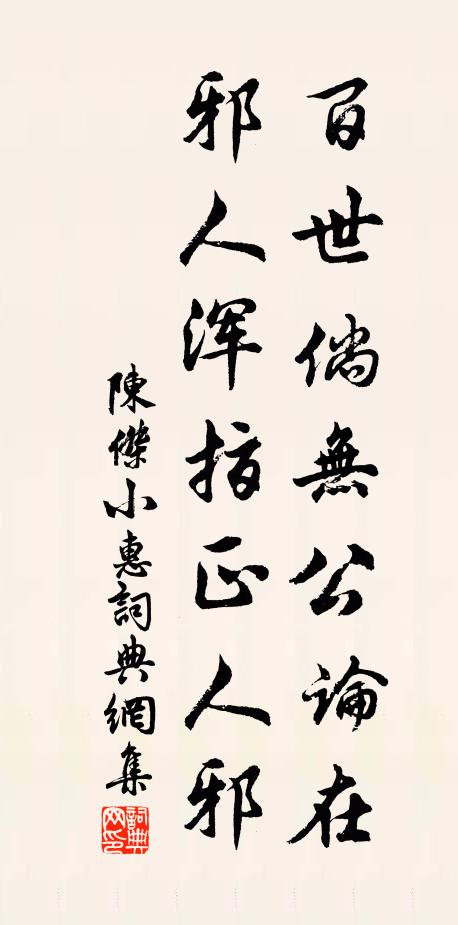 百世倘無公論在
邪人渾指正人邪
陳傑小惠詞典網集
詞典网印